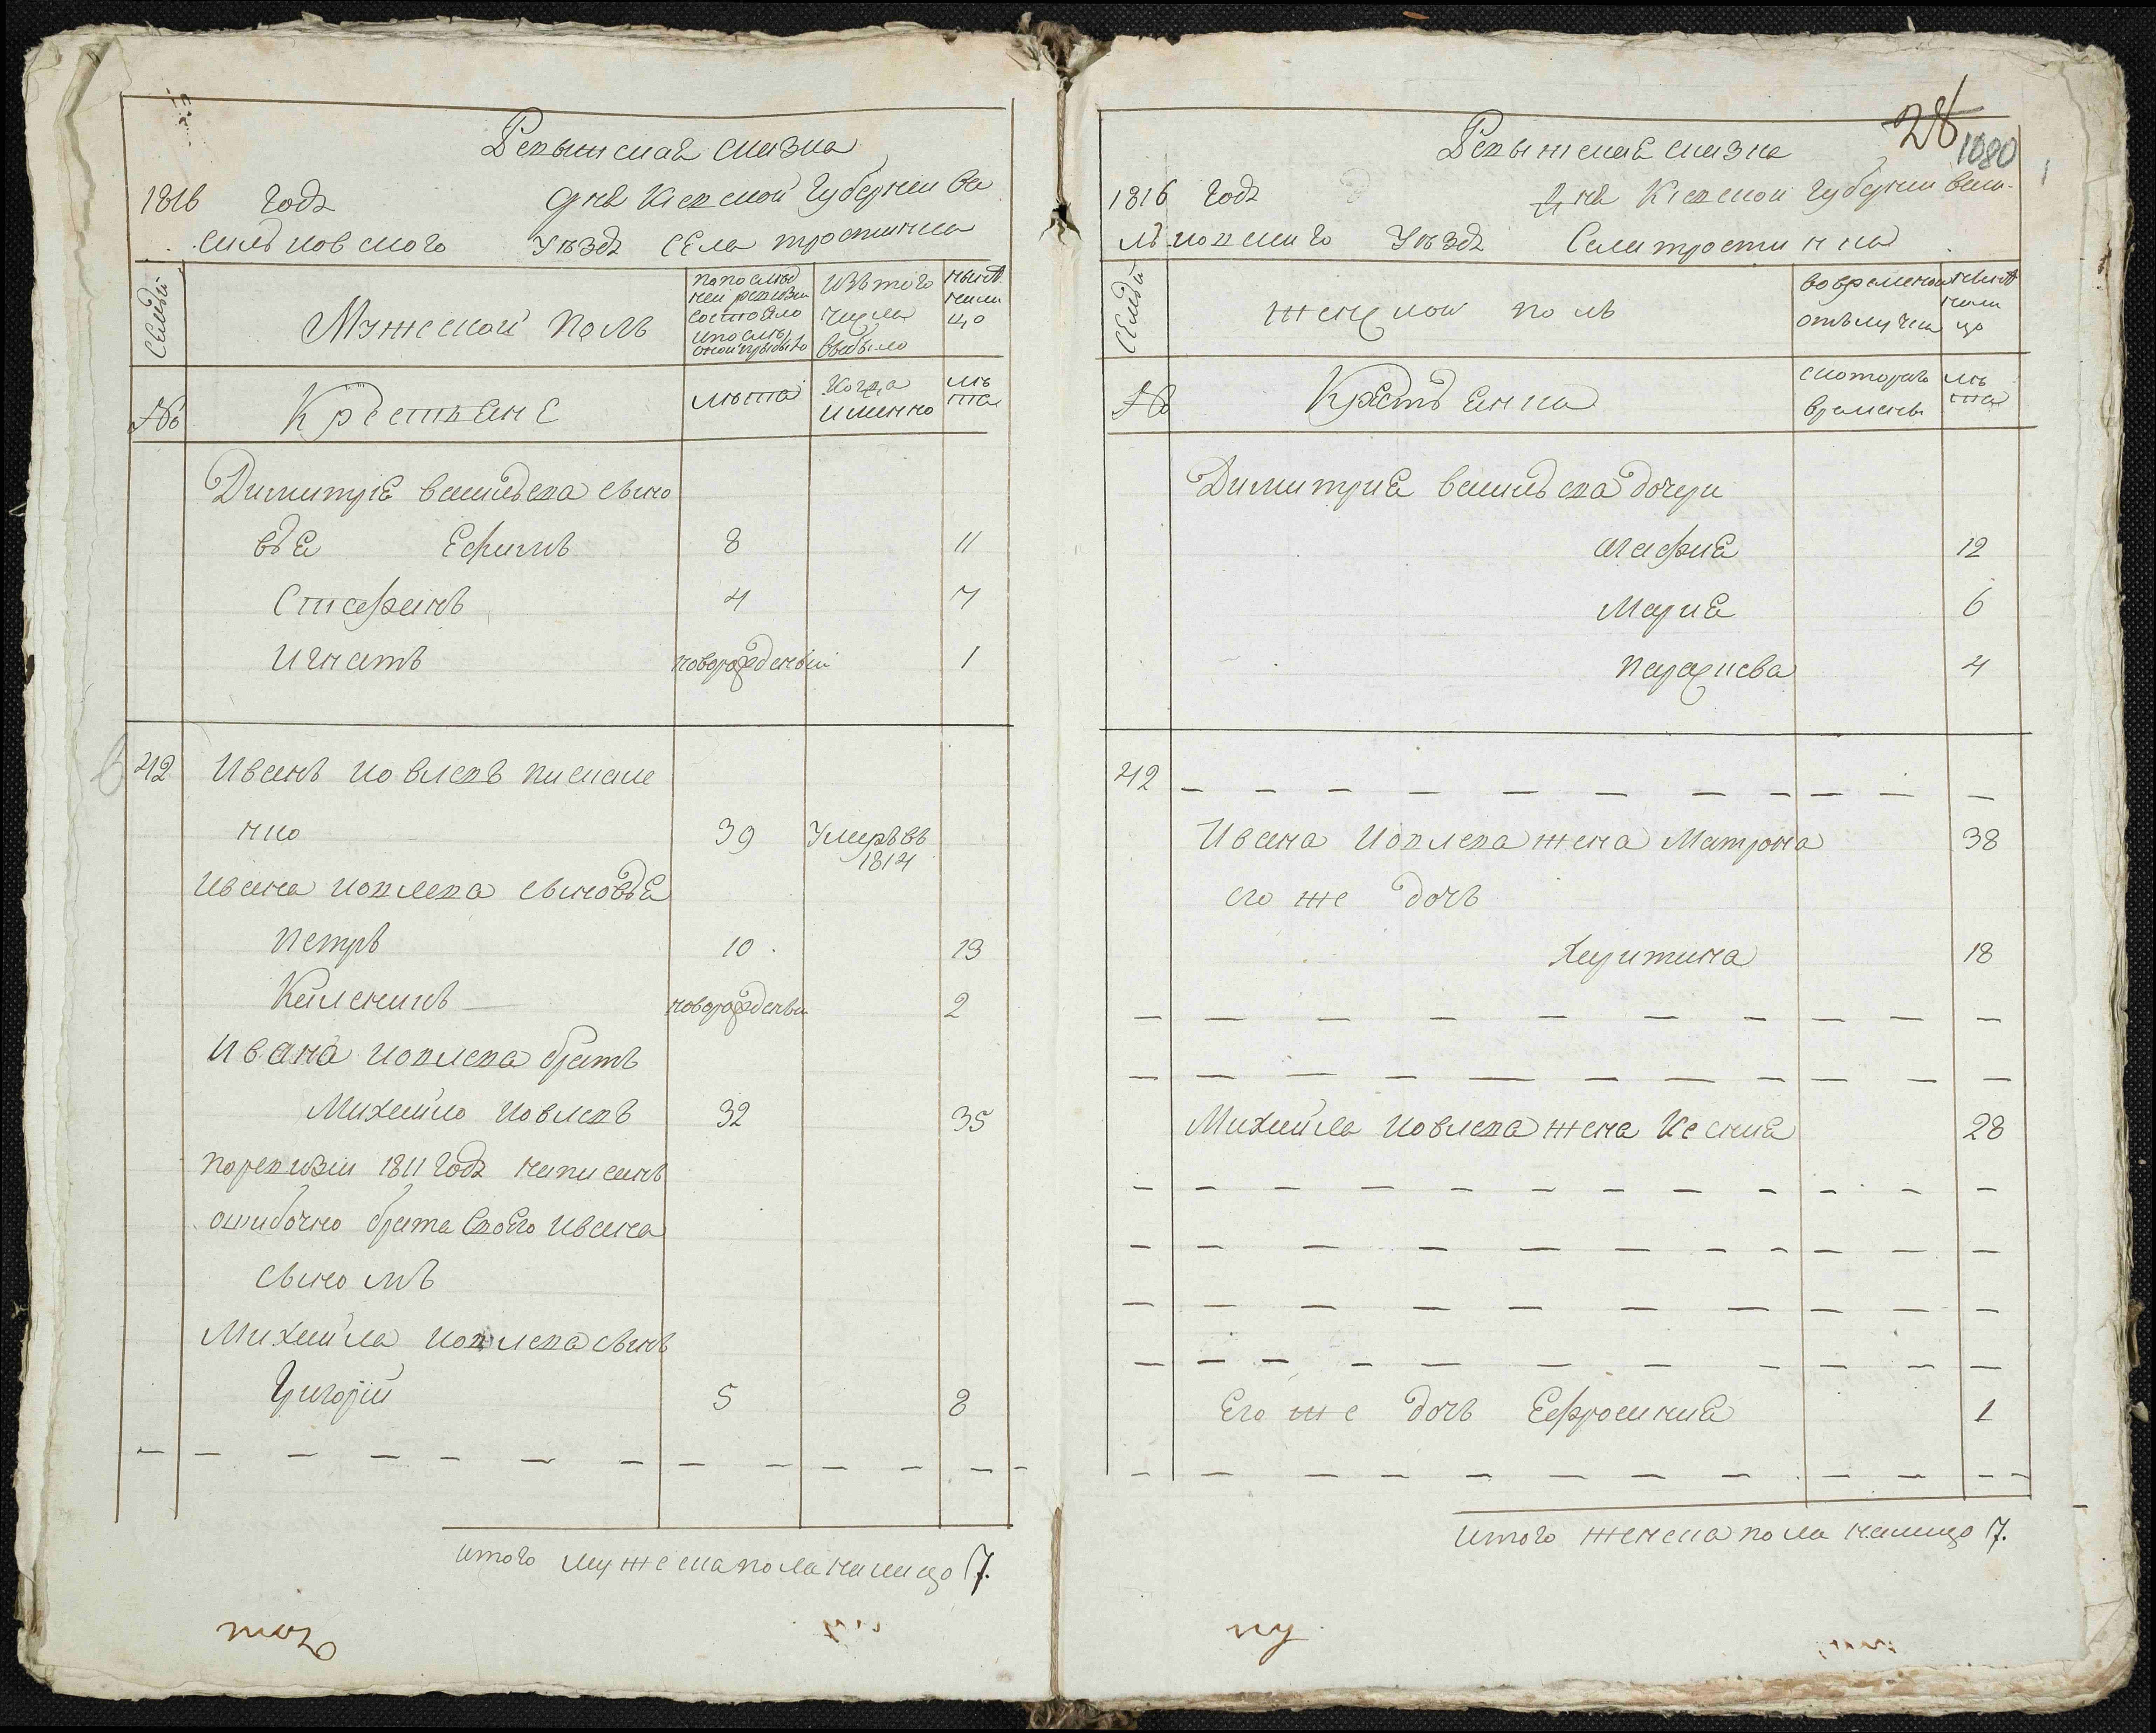 Ревыжская сказка
1816 годȣ дня Кіевской Губерніи Ва
сильковского Уѣздȣ Села тростинка
Семьи
Мужеской полъ
По послѣд
ней ревизіи
состояло
и послѣ
оной прибыло
Изъ того
числа
выбыло
нынѣ
нали
цо
№
Крестьяне
лѣта
Когда
именно
лѣ
та
Димитрія васильева сыно
вья Ефимъ 8 11
Стефанъ 4 7
Игнатъ новорожденный 1
42 Иванъ Іовлевъ писаме
нко 39 Умеръ въ
1814
Ивана Іовлева сыновья
Петръ 10 13
Каленикъ новорожденны 2
Ивана Іовлева братъ
Михайло Іовлевъ 32 35
По ревизіи 1811 годȣ написанъ
ошибочно брата своего Ивана
сыномъ
Михайла Іовлева сынъ
Григорій 5 8
Итого мужеска пола налицо 7.
28
1080
Ревыжская сказка
1816 годȣ дня Кіевской Губерніи Васи-
льковского Уѣздȣ Села тростинка
Семьи
Женской полъ
Во временной
отлучки
нынѣ
нали
цо
№
Крестьянка
с котораго
времены
лѣ
та
Димитрия васильева дочери
агафия 12
Мария 6
Параскева 4
42
Ивана Іовлева жена Матрона 38
Его же дочь
Харитина 18
Михайла Іовлева жена Ксения 28
Его же дочь Ефросиния 1
Итого женска пола налицо 7.